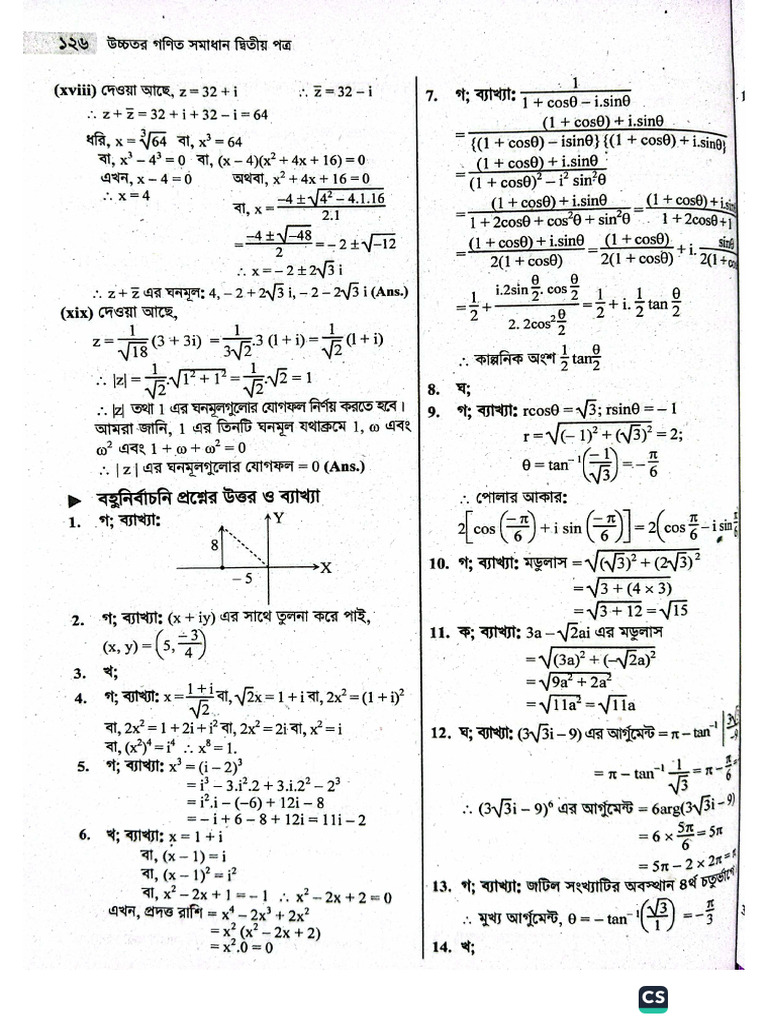 ১২৬ উচ্চতর গণিত সমাধান দ্বিতীয় পত্র
(xviii) দেওয়া আছে, z = 32 + i ∴ z̅ = 32 – i
∴ z + z̅ = 32 + i + 32 – i = 64
ধরি, x = ∛64 বা, x³ = 64
বা, x³ – 4³ = 0 বা, (x – 4)(x² + 4x + 16) = 0
এখন, x – 4 = 0 অথবা, x² + 4x + 16 = 0
∴ x = 4
বা, x = (–4 ± √(4² – 4.1.16))/2.1
= (–4 ± √–48)/2 = – 2 ± √–12
∴ x = – 2 ± 2√3 i
∴ z + z̅ এর ঘনমূল: 4, – 2 + 2√3 i, – 2 – 2√3 i (Ans.)
(xix) দেওয়া আছে,
z = 1/√18 (3 + 3i) = 1/(3√2) .3 (1 + i) = 1/√2 (1 + i)
∴ |z| = 1/√2 .√(1² + 1²) = 1/√2 .√2 = 1
∴ |z| তথা 1 এর ঘনমূলগুলোর যোগফল নির্ণয় করতে হবে।
আমরা জানি, 1 এর তিনটি ঘনমূল যথাক্রমে 1, ω এবং
ω² এবং 1 + ω + ω² = 0
∴ | z | এর ঘনমূলগুলোর যোগফল = 0 (Ans.)
▶ বহুনির্বাচনি প্রশ্নের উত্তর ও ব্যাখ্যা
1. গ; ব্যাখ্যা:
Y
8
X
– 5
2. গ; ব্যাখ্যা: (x + iy) এর সাথে তুলনা করে পাই,
(x, y) = (5, –3/4)
3. খ;
4. গ; ব্যাখ্যা: x = (1 + i)/√2 বা, √2x = 1 + i বা, 2x² = (1 + i)²
বা, 2x² = 1 + 2i + i² বা, 2x² = 2i বা, x² = i
বা, (x²)⁴ = i⁴ ∴ x⁸ = 1.
5. গ; ব্যাখ্যা: x³ = (i – 2)³
= i³ – 3.i².2 + 3.i.2² – 2³
= i².i – (–6) + 12i – 8
= – i + 6 – 8 + 12i = 11i – 2
6. খ; ব্যাখ্যা: x = 1 + i
বা, (x – 1) = i
বা, (x – 1)² = i²
বা, x² – 2x + 1 = – 1 ∴ x² – 2x + 2 = 0
এখন, প্রদত্ত রাশি = x⁴ – 2x³ + 2x²
= x² (x² – 2x + 2)
= x².0 = 0
7. গ; ব্যাখ্যা: 1/(1 + cosθ – i.sinθ)
= ((1 + cosθ) + i.sinθ)/({(1 + cosθ) – isinθ} {(1 + cosθ) + i.sinθ})
= ((1 + cosθ) + i.sinθ)/((1 + cosθ)² – i² sin²θ)
= ((1 + cosθ) + i.sinθ)/(1 + 2cosθ + cos²θ + sin²θ) = ((1 + cosθ) + i.sin)/(1 + 2cosθ + 1)
= ((1 + cosθ) + i.sinθ)/(2(1 + cosθ)) = (1 + cosθ)/(2(1 + cosθ)) + i. sinθ/(2(1 + cos
= 1/2 + (i.2sin θ/2. cos θ/2)/(2. 2cos² θ/2) = 1/2 + i. 1/2 tan θ/2
∴ কাল্পনিক অংশ 1/2 tan θ/2
8. ঘ;
9. গ; ব্যাখ্যা: rcosθ = √3; rsinθ = – 1
r = √((– 1)² + (√3)²) = 2;
θ = tan⁻¹(–1/√3) = – π/6
∴ পোলার আকার:
2[cos (–π/6) + i sin (–π/6)] = 2(cos π/6 – i sin π/6
10. গ; ব্যাখ্যা: মডুলাস = √((√3)² + (2√3)²)
= √(3 + (4 × 3))
= √(3 + 12) = √15
11. ক; ব্যাখ্যা: 3a – √2ai এর মডুলাস
= √((3a)² + (–√2a)²)
= √(9a² + 2a²)
= √(11a²) = √11a
12. ঘ; ব্যাখ্যা: (3√3i – 9) এর আর্গুমেন্ট = π – tan⁻¹ |3√3/–9
= π – tan⁻¹ 1/√3 = π – π/6
∴ (3√3i – 9)⁶ এর আর্গুমেন্ট = 6arg(3√3i – 9)
= 6 × 5π/6 = 5π
= 5π – 2 × 2π = π
13. গ; ব্যাখ্যা: জটিল সংখ্যাটির অবস্থান 8র্থ চতুর্ভাগে
∴ মুখ্য আর্গুমেন্ট, θ = – tan⁻¹(√3/1) = – π/3
14. খ;
CS